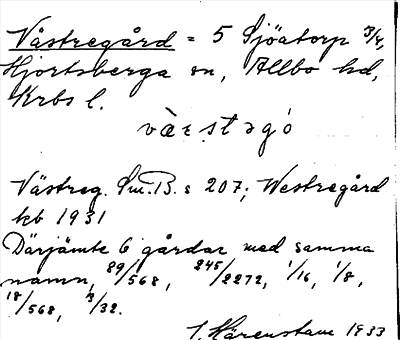 Västregård = 5 Sjöatorp 3/8,
Hjortsberga sn, Allbo hd,
Krbs l.
Västreg. Sm.B. s 207; Westregård
kb 1931
Därjämte 6 gårdar med samma
namn, 89/568, 245/2272, 1/16, 1/8,
18/568, 3/32.
J. Härenstam 1933